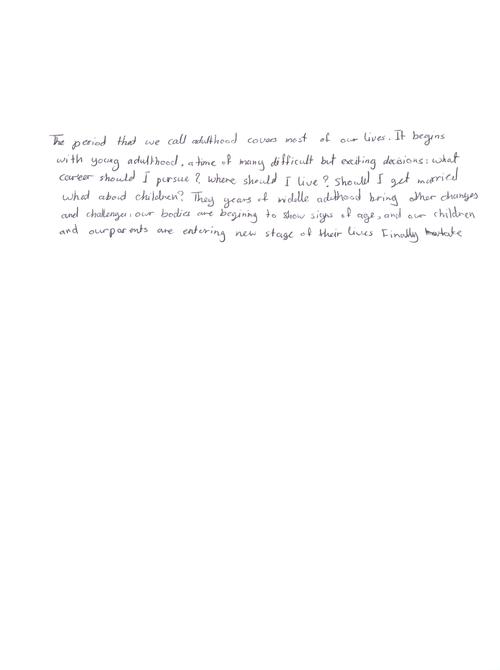 The period that we call adulthood covers most of our lives. It begins
with young adulthood, a time of many difficult but exciting decisions: what
career should I pursue? Where should I live? Should I get married
what about children? They years of middle adulthood bring other changes
and challenges: our bodies are begining to show signs of age, and our children
and our parents are entering new stage of their lives Finally